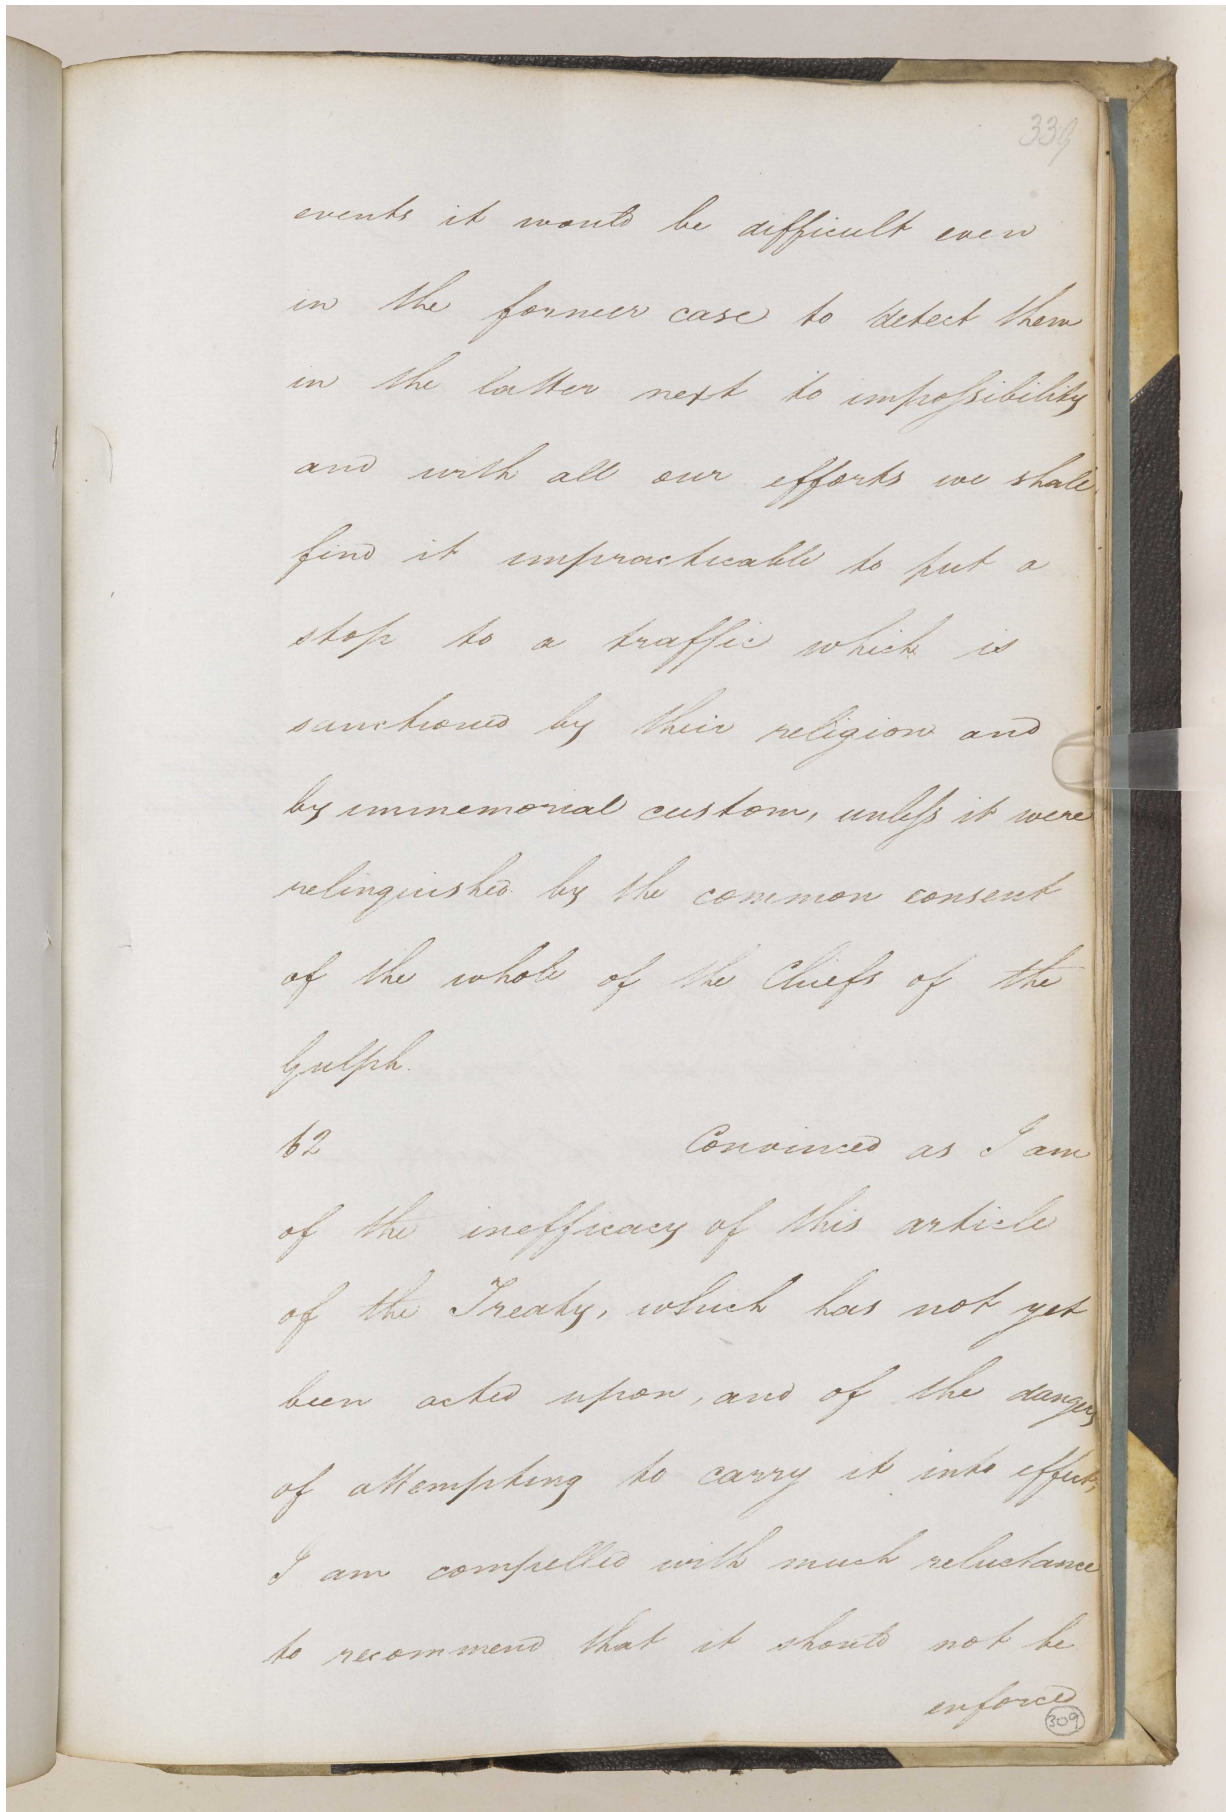 339
events it would be difficult even
in the former case to detect them
in the latter next to impossibility
and with all our efforts we shall
find it impracticable to put a
stop to a traffic which is
sanctioned by their religion and
by immemorial custom, unless it were
relinquished by the common consent
of the whole of the Chiefs of the
Gulph.
62 Convinced as I am
of the inefficacy of this article
of the Treaty, which has not yet
been acted upon, and of the dangers
of attempting to carry it into effect,
I am compelled with much reluctance
to recommend that it should not be
enforced
309